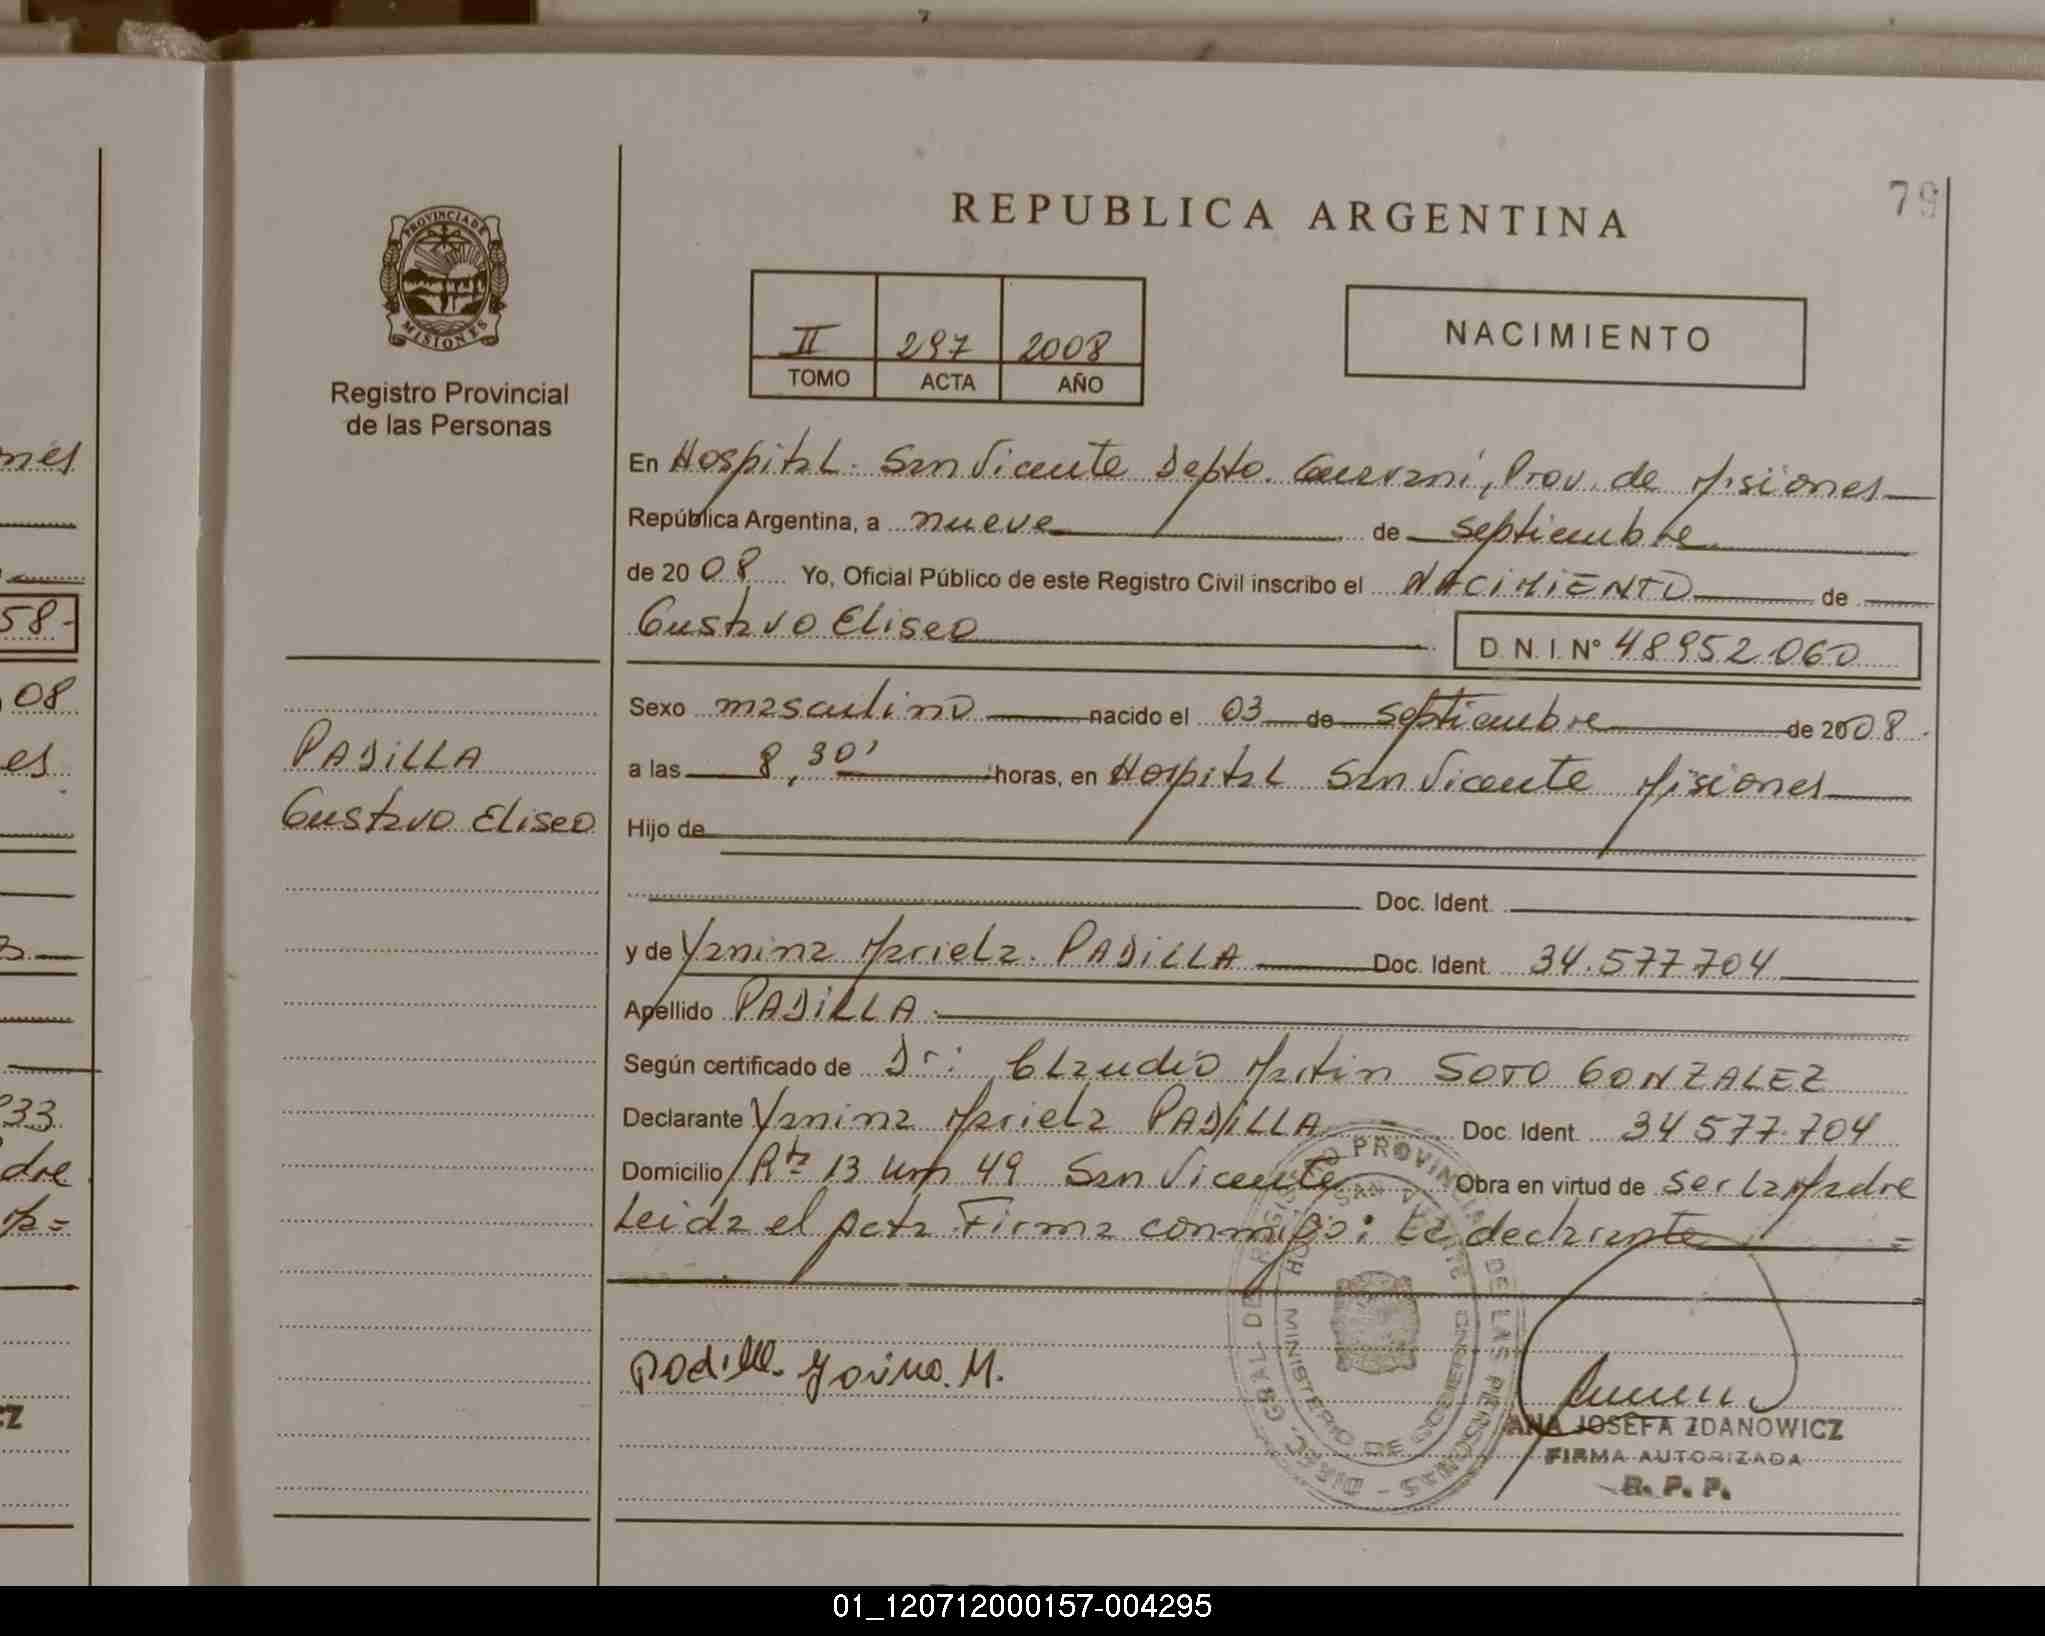 79
REPUBLICA ARGENTINA
PROVINCIA DE
MISIONES
Registro Provincial
de las Personas
II 297 2008
TOMO ACTA AÑO
NACIMIENTO
En Hospital San Vicente Depto. Guaraní, Prov. de Misiones
República Argentina, a nueve de septiembre
de 2008 Yo, Oficial Público de este Registro Civil inscribo el NACIMIENTO de
Gustavo Eliseo D. N. I. Nº 48952.060
Sexo masculino nacido el 03 de septiembre de 2008.
a las 8,30' horas, en Hospital San Vicente Misiones
Hijo de
Doc. Ident.
y de Yanina Mariela PADiLLA Doc. Ident. 34.577.704
Apellido PADiLLA
Según certificado de Dr: Claudio Martin SOTO GONZALEZ
Declarante Yanina Mariela PADiLLA Doc. Ident. 34 577.704
Domicilio Rta 13 km 49 San Vicente Obra en virtud de ser la Madre
Leida el acta Firma conmigo: La declarante =
PADiLLA
Gustavo Eliseo
Padilla Yanina. M.
DIREC. GRAL. DE REGISTRO PROVINCIAL DE LAS PERSONAS -
MINISTERIO DE GOBIERNO
ANA JOSEFA ZDANOWICZ
FIRMA AUTORIZADA
R. P. P.
nes
58-
08
es
933
dre
CZ
01_120712000157-004295